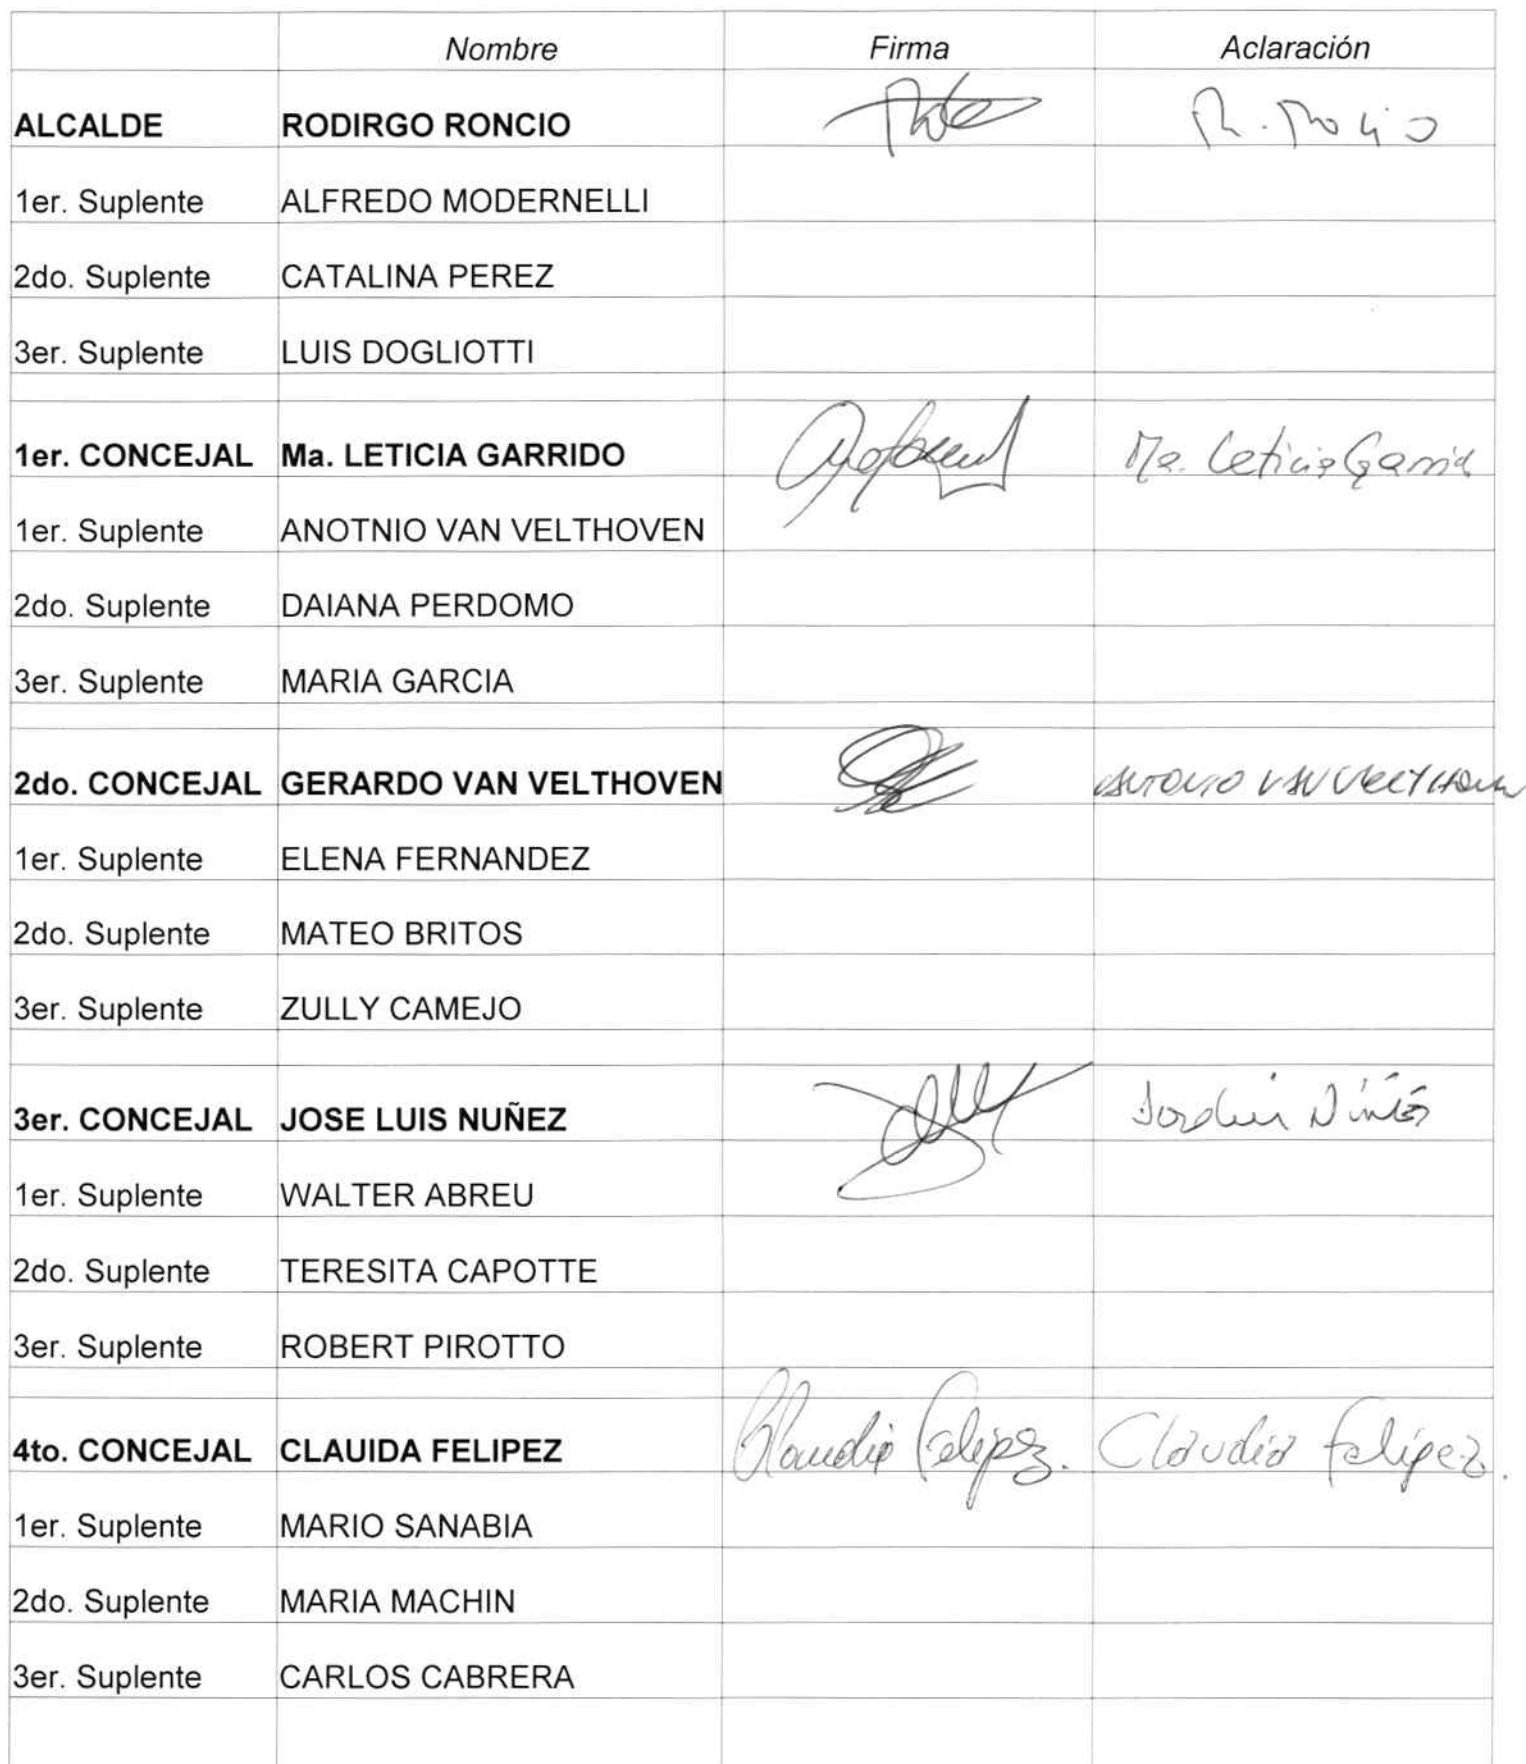 Nombre Firma Aclaración
ALCALDE RODIRGO RONCIO R. Roncio
1er. Suplente ALFREDO MODERNELLI
2do. Suplente CATALINA PEREZ
3er. Suplente LUIS DOGLIOTTI
1er. CONCEJAL Ma. LETICIA GARRIDO Ma. Leticia Garrido
1er. Suplente ANOTNIO VAN VELTHOVEN
2do. Suplente DAIANA PERDOMO
3er. Suplente MARIA GARCIA
2do. CONCEJAL GERARDO VAN VELTHOVEN ANTONIO VAN VELTHOVEN
1er. Suplente ELENA FERNANDEZ
2do. Suplente MATEO BRITOS
3er. Suplente ZULLY CAMEJO
3er. CONCEJAL JOSE LUIS NUÑEZ
1er. Suplente WALTER ABREU
2do. Suplente TERESITA CAPOTTE
3er. Suplente ROBERT PIROTTO
4to. CONCEJAL CLAUIDA FELIPEZ Claudia Felipez. Claudia Felipez.
1er. Suplente MARIO SANABIA
2do. Suplente MARIA MACHIN
3er. Suplente CARLOS CABRERA